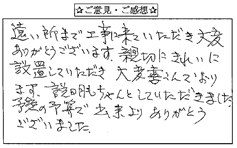 ☆ご意見・ご感想☆
遠い所まで工事に来ていただき大変
ありがとうございます。親切にきれいに
設置していただき大変喜んでおり
ます。説明もちゃんとしていただきました。
予定の予算で出来よりありがとう
ございました。